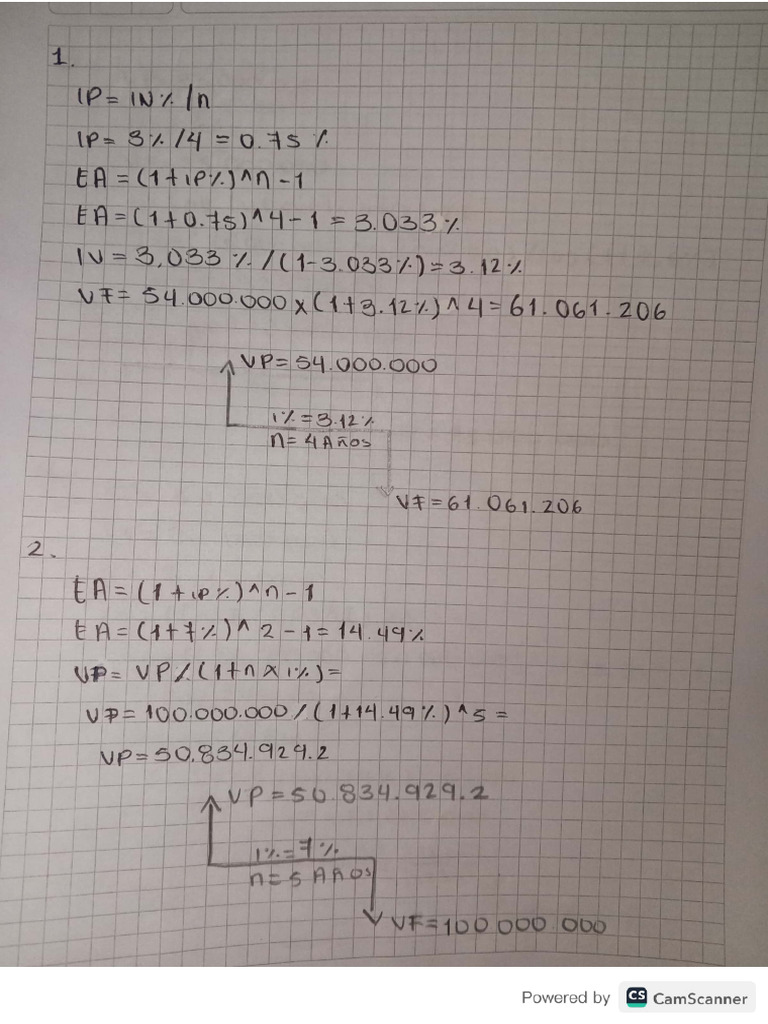 1.
IP = IN% / n
IP = 3% / 4 = 0.75 %
EA = (1 + IP%) ^ n - 1
EA = (1 + 0.75) ^ 4 - 1 = 3.033 %
IV = 3,033 % / (1 - 3.033%) = 3.12%
VF = 54.000.000 x (1 + 3.12%) ^ 4 = 61.061.206
VP = 54.000.000
i% = 3.12%
n = 4 AÑOS
VF = 61.061.206
2.
EA = (1 + iP%) ^ n - 1
EA = (1 + 7%) ^ 2 - 1 = 14.49%
VP = VP / (1 + n x i%) =
VP = 100.000.000 / (1 + 14.49%) ^ 5 =
VP = 50.834.929.2
VP = 50.834.929.2
i% = 7%
n = 5 AÑOS
VF = 100 000 000
Powered by CS CamScanner